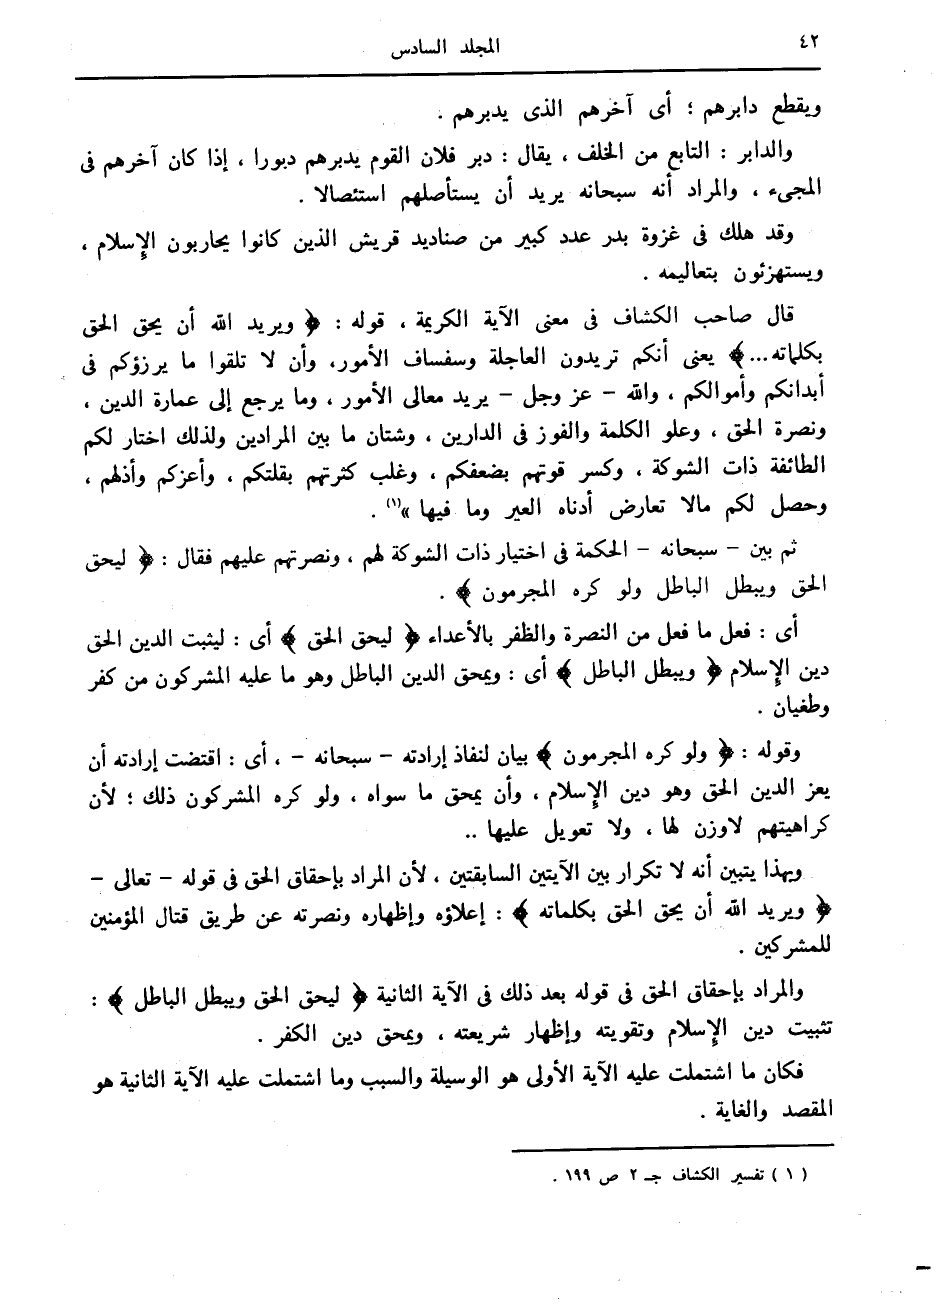 ٤٢
المجلد السادس
ويقطع دابرهم ؛ أى آخرهم الذى يدبرهم .
والدابر : التابع من الخلف ، يقال : دبر فلان القوم يدبرهم دبورا ، إذا كان آخرهم فى
المجىء ، والمراد أنه سبحانه يريد أن يستأصلهم استئصالا .
وقد هلك فى غزوة بدر عدد كبير من صناديد قريش الذين كانوا يحاربون الإسلام ،
ويستهزئون بتعاليمه .
قال صاحب الكشاف فى معنى الآية الكريمة ، قوله : ﴿ ويريد الله أن يحق الحق
بكلماته...﴾ يعنى أنكم تريدون العاجلة وسفساف الأمور، وأن لا تلقوا ما يرزؤكم فى
أبدانكم وأموالكم ، والله – عز وجل – يريد معالى الأمور ، وما يرجع إلى عمارة الدين ،
ونصرة الحق ، وعلو الكلمة والفوز فى الدارين ، وشتان ما بين المرادين ولذلك اختار لكم
الطائفة ذات الشوكة ، وكسر قوتهم بضعفكم ، وغلب كثرتهم بقلتكم ، وأعزكم وأذلهم ،
وحصل لكم مالا تعارض أدناه العير وما فيها »(١) .
ثم بين – سبحانه – الحكمة فى اختيار ذات الشوكة لهم ، ونصرتهم عليهم فقال : ﴿ ليحق
الحق ويبطل الباطل ولو كره المجرمون ﴾ .
أى : فعل ما فعل من النصرة والظفر بالأعداء ﴿ ليحق الحق ﴾ أى : ليثبت الدين الحق
دين الإسلام ﴿ ويبطل الباطل ﴾ أى : ويمحق الدين الباطل وهو ما عليه المشركون من كفر
وطغيان .
وقوله : ﴿ ولو كره المجرمون ﴾ بيان لنفاذ إرادته – سبحانه – ، أى : اقتضت إرادته أن
يعز الدين الحق وهو دين الإسلام ، وأن يمحق ما سواه ، ولو كره المشركون ذلك ؛ لأن
كراهيتهم لاوزن لها ، ولا تعويل عليها ..
وبهذا يتبين أنه لا تكرار بين الآيتين السابقتين ، لأن المراد بإحقاق الحق فى قوله – تعالى –
﴿ ويريد الله أن يحق الحق بكلماته ﴾ : إعلاؤه وإظهاره ونصرته عن طريق قتال المؤمنين
للمشركين .
والمراد بإحقاق الحق فى قوله بعد ذلك فى الآية الثانية ﴿ ليحق الحق ويبطل الباطل ﴾ :
تثبيت دين الإسلام وتقويته وإظهار شريعته ، ويمحق دين الكفر .
فكان ما اشتملت عليه الآية الأولى هو الوسيلة والسبب وما اشتملت عليه الآية الثانية هو
المقصد والغاية .
( ١ ) تفسير الكشاف جـ ٢ ص ١٩٩ .